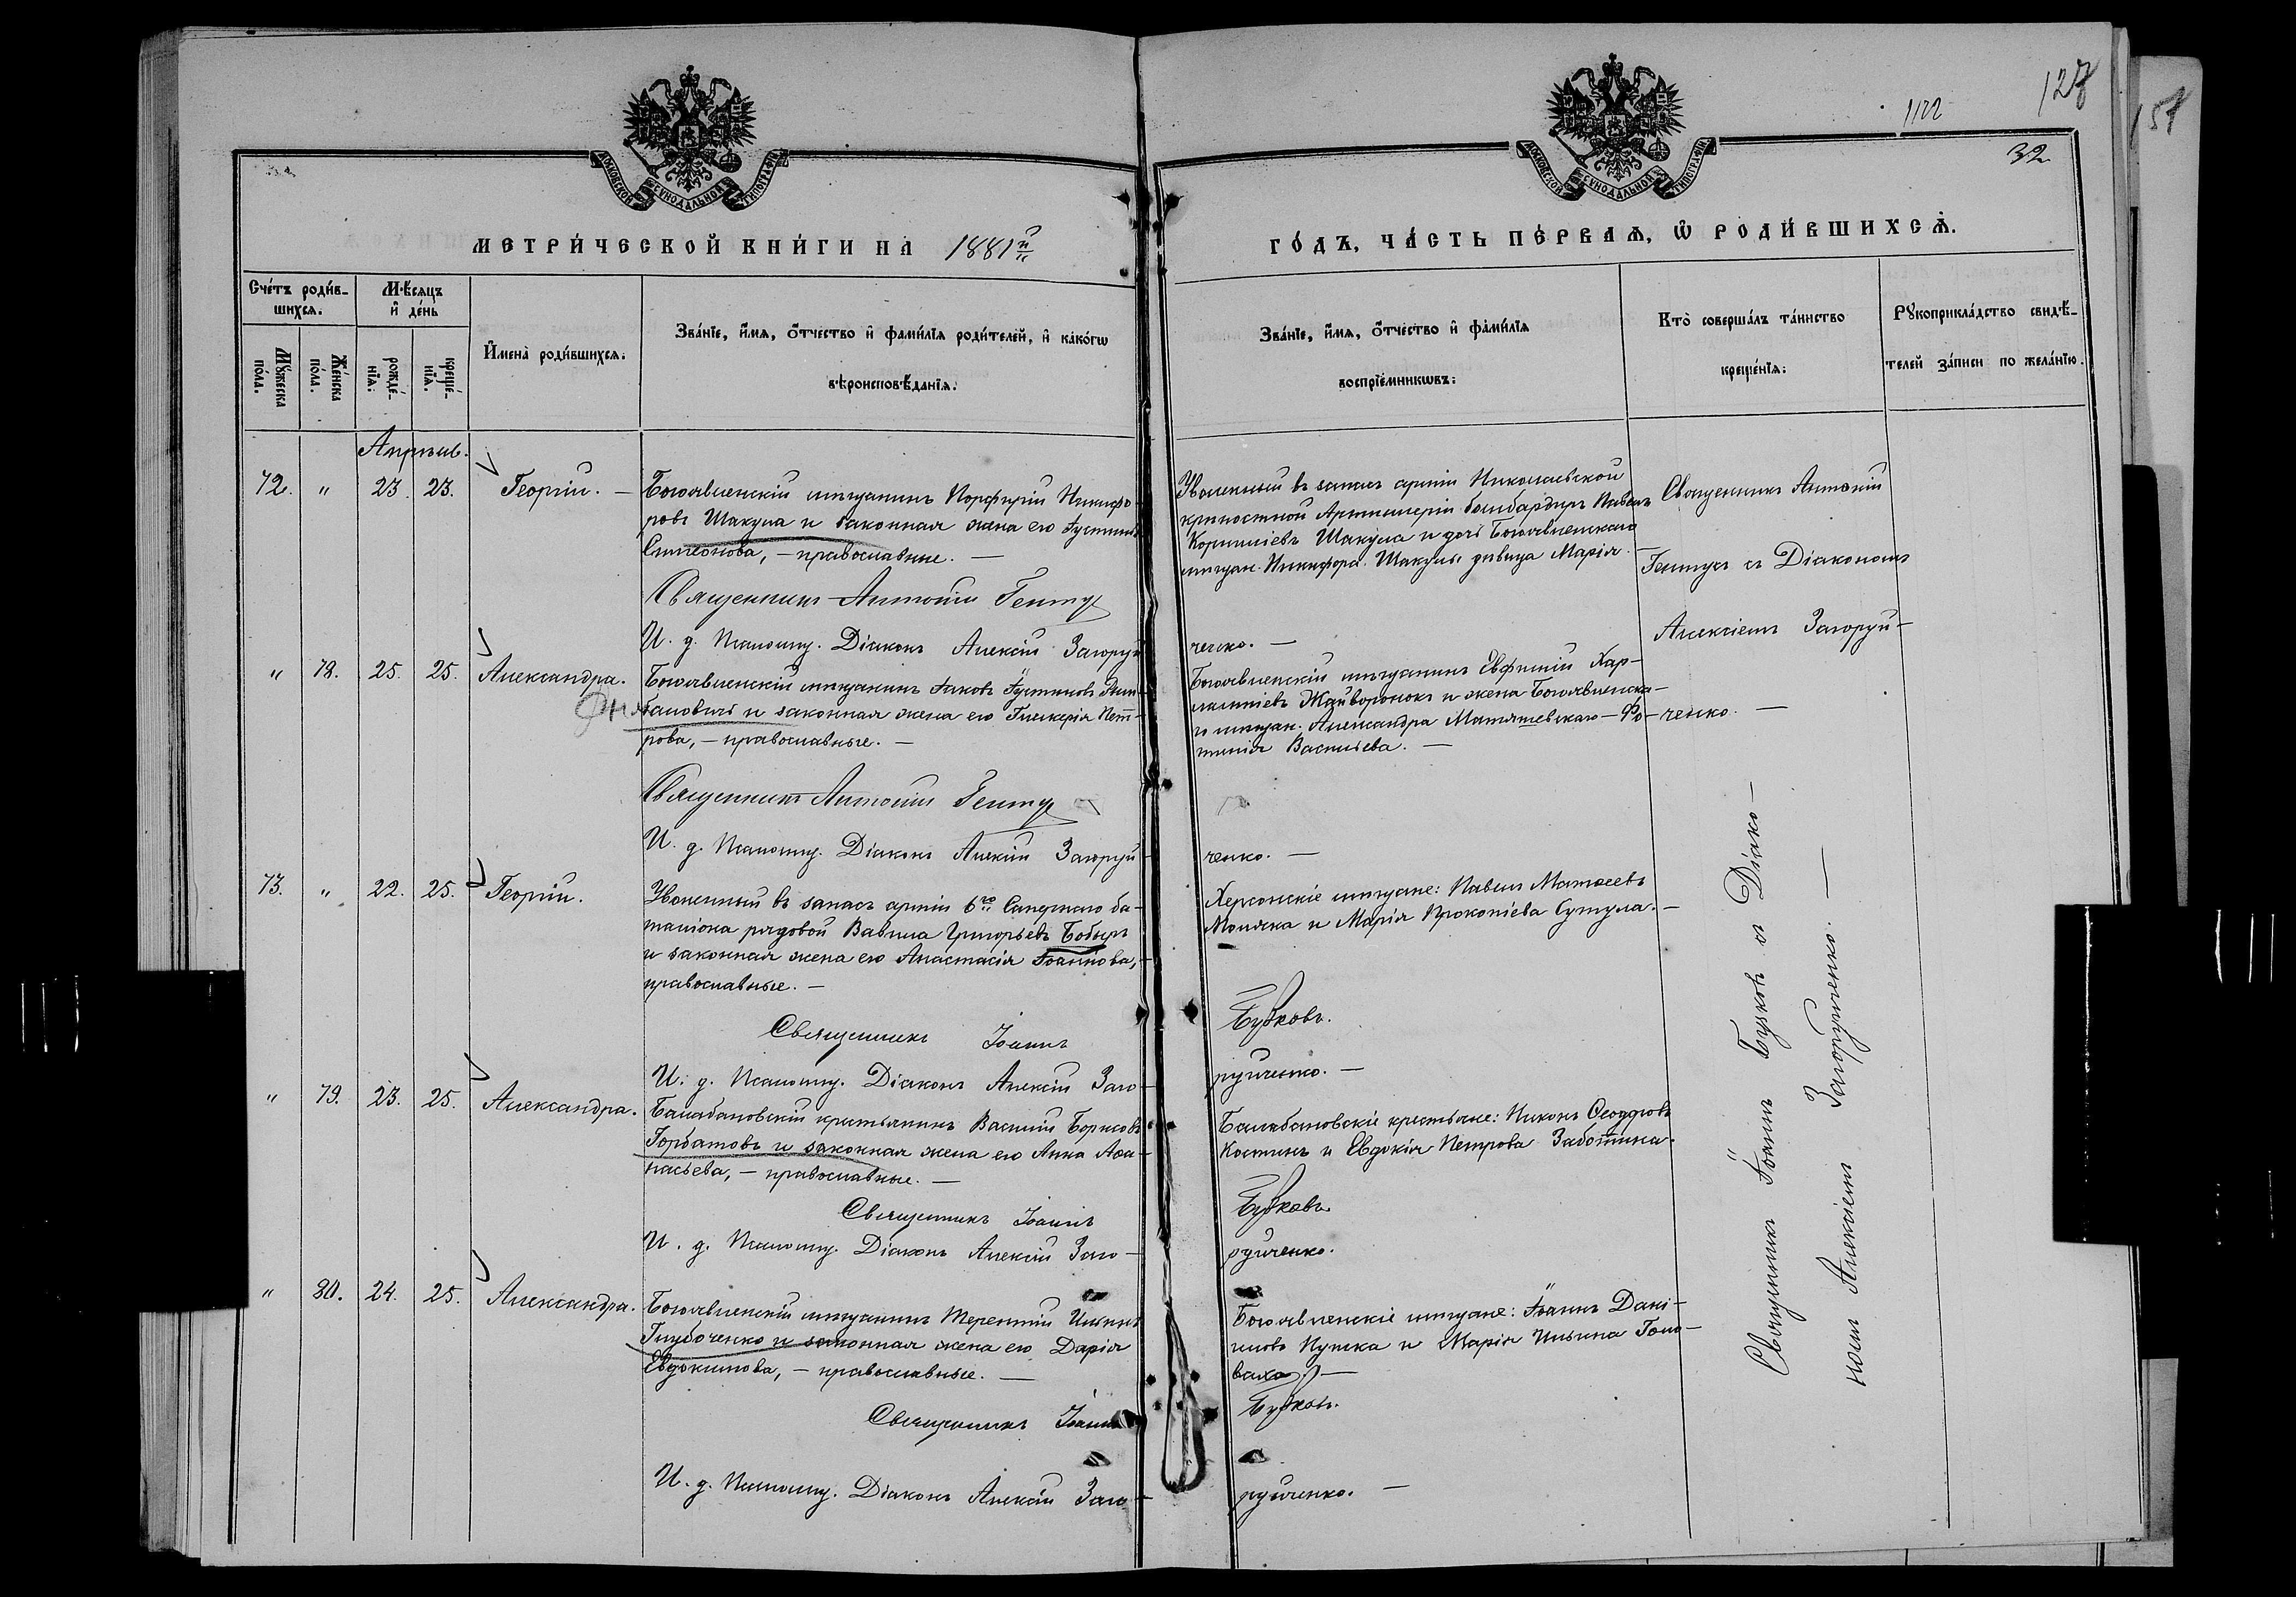 1122
127
157
32
МОСКОВСКОЙ СѴНОДАЛЬНОЙ ТИПОГРАФІИ
МОСКОВСКОЙ СѴНОДАЛЬНОЙ ТИПОГРАФІИ
МЕТРИ́ЧЕСКОЙ КНИ́ГИ НА 1881й
ГО́ДЪ, ЧА́СТЬ ПЕ́РВАѦ, Ѡ РОДИ́ВШИХСѦ.
Сче́тъ роди́в-
шихсѧ.
Мꙋ́жеска
по́ла.
Же́нска
по́ла.
М́ѣсѧцъ
и҆ де́нь
рожде́-
нїѧ:
креще́-
нїѧ.
И҆мена̀ роди́вшихсѧ.
Зва́нїе, и҆́мѧ, ѻ҆́тчество и҆ фами́лїѧ роди́телей, и҆ како́гѡ
вѣроисповѣ́данїѧ.
Зва́нїе, и҆́мѧ, ѻ҆́тчество и҆ фами́лїѧ
воспрїе́мникѡвъ:
Кто̀ соверша́лъ та́инство
креще́нїѧ:
Рꙋкоприкла́дство свидѣ́-
телей за́писи по жела́нїю.
Апрѣль.
72. " 23. 23. Георгій. —
Богоявленскій мѣщанинъ Порфирій Никифо-
ровъ Шакула и законная жена его Іустина
Симеонова, — православные. —
Священникъ Антоній Гентуъ
И. д. Псаломщ. Діаконъ Алексій Загоруй-
Уволенный въ запасъ арміи Николаевской
крѣпостной Артиллеріи бомбардиръ Павелъ
Корниліевъ Шакула и дочь Богоявленскаго
мѣщан. Никифора Шакулы дѣвица Марія. —
ченко. —
Священникъ Антоній
Гентуъ съ Діакономъ
Алексіемъ Загоруй-
ченко. —
" 78. 25. 25. Александра.
Богоявленскій мѣщанинъ Іаковъ Іустиновъ
бановичъ и законная жена его Гликерія Пет-
рова, — православные. —
Священникъ Антоній Гентуъ
И. д. Псаломщ. Діаконъ Алексій Загоруй-
Богоявленскій мѣщанинъ Евфимій Хар-
лампіевъ Жайворонокъ и жена Богоявленска-
го мѣщан. Александра Матяшевскаго — Фо-
тинія Васильева. —
ченко. —
73. " 22. 25. Георгій.
Уволенный въ запасъ арміи 6го Сапернаго ба-
таліона рядовой Вавила Григорьевъ Бобырь
и законная жена его Анастасія Іоаннова,
православные. —
Священникъ Іоаннъ
И. д. Псаломщ. Діаконъ Алексій Заго-
Херсонскіе мѣщане: Павелъ Матѳеевъ
Моляка и Марія Прокопіева Сутула. —
Бужовъ.
руйченко. —
" 79. 23. 25. Александра.
Балабановскій крестьянинъ Василій Борисовъ
Горбатовъ и законная жена его Анна Аѳа-
насьева, — православные. —
Священникъ Іоаннъ
И. д. Псаломщ. Діаконъ Алексій Заго-
Балабановскіе крестьяне: Никонъ Ѳеодоровъ
Костинъ и Евдокія Петрова Заботина.
Бужовъ.
руйченко.
" 80. 24. 25. Александра.
Богоявленскій мѣщанинъ Терентій Ильинъ
Глубоченко и законная жена его Дарія
Евдокимова, — православные. —
Священникъ Іоаннъ
И. д. Псаломщ. Діаконъ Алексій Заго-
Богоявленскіе мѣщане: Іоаннъ Дані-
иловъ Пушка и Марія Ильина Голо-
ваха. —
Бужовъ.
руйченко. —
Священникъ Іоаннъ Бужовъ съ Діако-
номъ Алексіемъ Загоруйченко. —